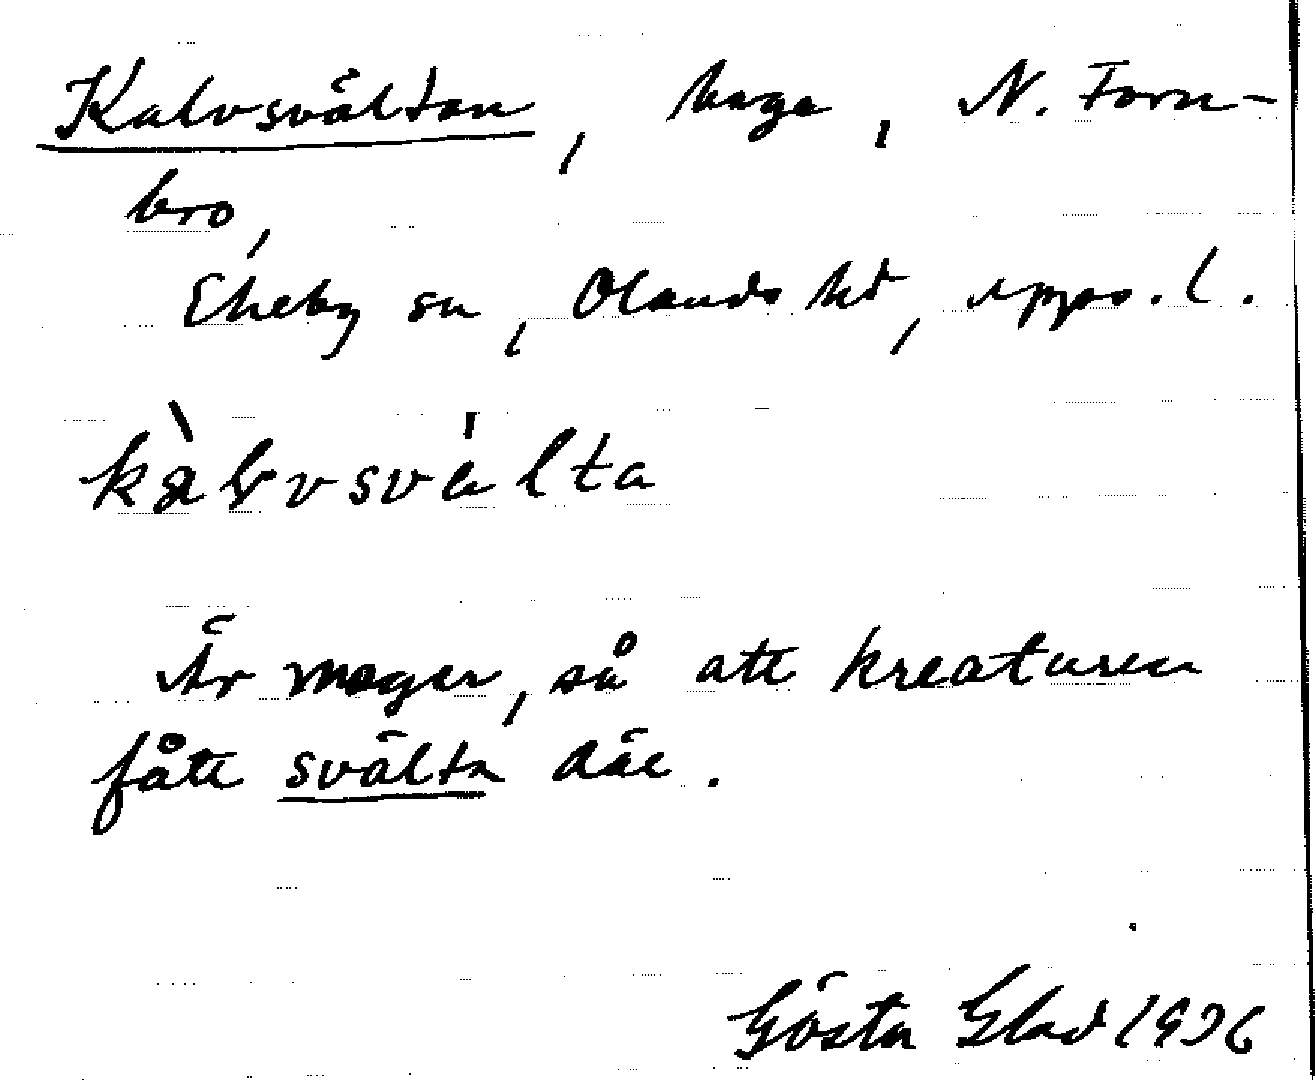 Kalvsvältan, hage, N. Forn-
bro,
Ekeby sn, Olands hd, Upps. l.
kàlvsvälta
Är mager, så att kreaturen
fått svälta där.
Gösta Elad 1936